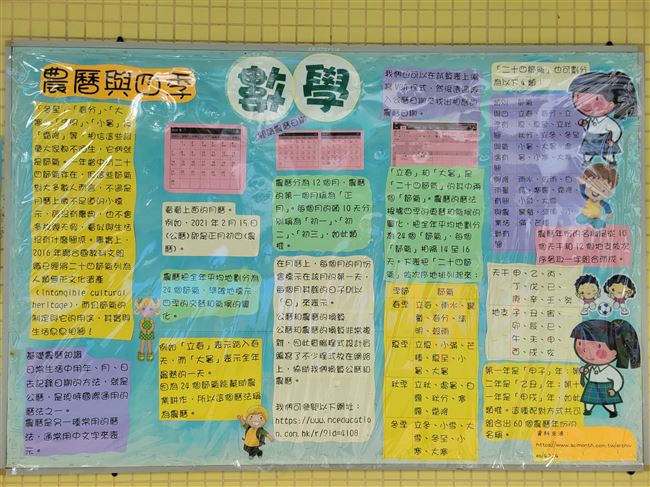 農曆與四季
數學
「冬至」、「春分」、「大
寒」、「立秋」、「小暑」、
「霜降」等，相信這些詞
彙大家都不陌生，它們就
是節氣。一年當中有二十
四節氣存在，但這些節氣
對大多數人而言，不過是
月曆上微不足道的小標
示，既沒有慶典，也不會
多放幾天假，看似與生活
沒有什麼關聯。事實上，
2016年聯合國教科文組
織已經將二十四節氣列為
人類非元文化遺產
(intangible cultural
heritage)，而且節氣的
制定與它的用途，其實與
生活息息相關！
基礎農曆知識
日常生活中用年、月、日
去記錄日期的方法，就是
公曆，是現時國際通用的
曆法之一。
農曆是另一種常用的曆
法，通常用中文字來表
示。
看看上面的月曆。
例如，2021年2月15日
(公曆)即是正月初四(農
曆)。
農曆把全年平均地劃分為
24個節氣，準確地標示
四季的交替和氣候的變
化。
例如「立春」表示踏入春
天，而「大暑」表示全年
最熱的一天。
因為24個節氣能幫助農
業耕作，所以這個曆法稱
為農曆。
認識農曆日期
農曆分為12個月，農曆
的第一個月稱為「正
月」。每個月的首10天分
別稱為「初一」、「初
二」、「初三」，如此類推。
在月曆上，每個月的月份
會標示在該月的第一天，
每個月其餘的日子則以
「日」來表示。
公曆和農曆的換算
公曆和農曆的換算非常複
雜，因此有編程式設計員
編寫了不少程式放在網路
上，協助我們換算公曆和
農曆。
我們可參閱以下網址：
https://www.nceducatio
n.com.hk/r/?id=4108
我們也可以在試算表上編
寫VB程式，然後透過輸
入公曆日期來找出相應的
農曆日期。
「立春」和「大暑」是
「二十四節氣」的其中兩
個「節氣」。農曆的曆法
根據四季的交替和氣候的
變化，把全年平均地劃分
為24個「節氣」，每個
「節氣」相隔14至16
天。下表把「二十四節
氣」依次序地排列出來：
季節 節氣
春季 立春、雨水、驚
蟄、春分、清
明、穀雨
夏季 立夏、小滿、芒
種、夏至、小
暑、大暑
秋季 立秋、處暑、白
露、秋分、寒
露、霜降
冬季 立冬、小雪、大
雪、冬至、小
寒、大寒
「二十四節氣」也可劃分
為以下4類：
農曆年份的名稱是從10
個天干和12個地支依次
序各取一字組合而成。
天干 甲、乙、丙、
丁、戊、己、
庚、辛、壬、癸
地支 子、丑、寅、
卯、辰、巳、
午、未、申、
酉、戌、亥
第一年是「甲子」年，第
二年是「乙丑」年，第十
一年是「甲戌」年，如此
類推。這種配對方式共可
組合出60個農曆年份的
名稱。
資料來源：